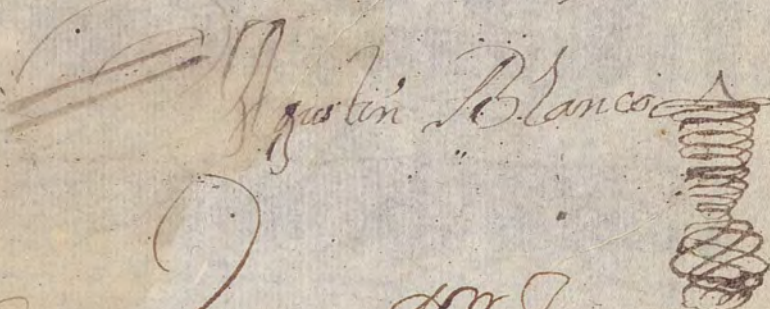 Agustin Blanco